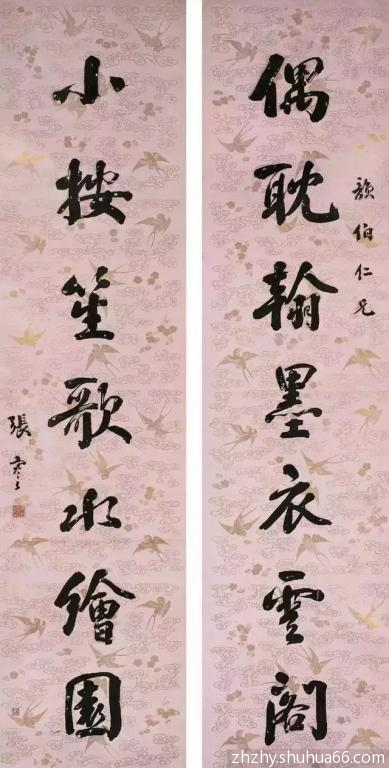 偶耽翰墨衣雲閣
伯仁兄
小按笙歌冰繪園
張謇
zhzhy.shuhua66.com